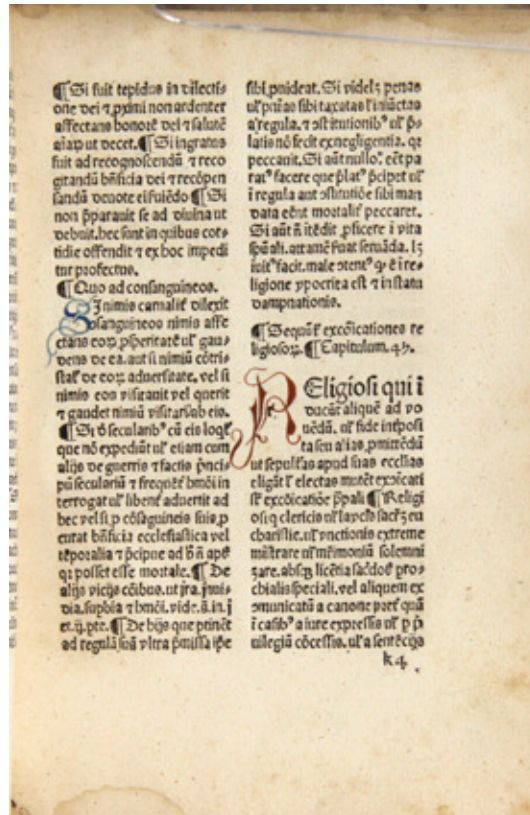 ¶ Si fuit tepidus in dilecti⸗
one dei ⁊ ꝓximi non ardenter
affectans bonorē dei ⁊ salutē
aīaꝝ ut decet. ¶ Si ingratus
fuit ad recognoscendā ⁊ reco
gitandā bn̄ficia dei ⁊ recōpen
sandā deuote ei fuiēdo ¶ Si
non p̄parauit se ad diuina ut
debuit. hec sunt in quibus cot⸗
tidie offendit ⁊ ex hoc impedi
tur profectus.
¶ Quo ad consanguineos.
SI nimis carnalit̄ dilexit
ꝯsanguineos nimis affe
ctans eoꝝ ꝓsperitatē ul̄ gau⸗
dens de ea. aut si nimiū cōtri⸗
stat̄ de eoꝝ aduersitate. vel si
nimis eos visitauit vel querit
⁊ gaudet nimiū visitari ab eis.
¶ Si ꝟo secularibꝰ cū eis loqt̄
que nō expediūt ul̄ etiam cum
alijs de guerris ⁊ factis p̄nci⸗
pū seculariū ⁊ frequēt̄ hmōi in
terrogat ul̄ libent̄ aduertit ad
hec vel si ꝓ cōsāguineis suis ꝓ
curat bn̄ficia ecclesiastica vel
tēporalia ⁊ p̄cipue ad
qꝛ posset esse mortale. ¶ De
alijs vicijs cōibus. ut jra. jnui⸗
dia. supbia ⁊ hmōi. vide. ā. in. j
et. ij. pte. ¶ De hijs que ptinēt
ad regulā suā vltra p̄missa ip̄e
sibi ꝓuideat. Si videlꝫ penas
ul̄ pn̄ias sibi taxatas ul̄ iniūctas
a regula. ⁊ ꝯstitutionibꝰ ul̄ p̄⸗
latis nō fecit ex negligentia. qꝛ
peccauit. Si aūt nullo. eēt pa
ratꝰ facere que p̄latꝰ p̄cipet ul̄
ī regula aut ꝯstitutiōe sibi man
data eēnt mortalit̄ peccaret.
Si aūt nō ītēdit ꝓficere ī vita
spūali. attamē fuat seruāda. lꝫ
facit. male ꝯtentꝰ qꝫ ē ī re⸗
ligione ypocrita est ⁊ in statu
dampnationis.
¶ Sequūt̄ excōicationes re
ligiosoꝝ. ¶ Capitulum. 45.
REligiosi qui ī
ducūt aliquē ad vo
uēdū. ul̄ fide intposi
ta seu alias, ꝓmittēdū
ut sepult̄as apud suas ecclias
eligāt ul̄ electas mutēt excōicati
sūt excōicatiōe p̄pali ¶ Religi
osi qui clericis ul̄ laycis sacr̄ꝫ eu
charistie. ul̄ vnctionis extreme
mistrare ul̄ mr̄imoniū solemni
zare. absqꝫ licētia sacdoꝭ pro⸗
chialis speciali. vel aliquem ex
ꝯmunicatū a canone pret̄ quā
ī casibꝰ a iure expressis ul̄ ꝑ p̄
uilegiū cōcessis. ul̄ a sentēcijs
k4